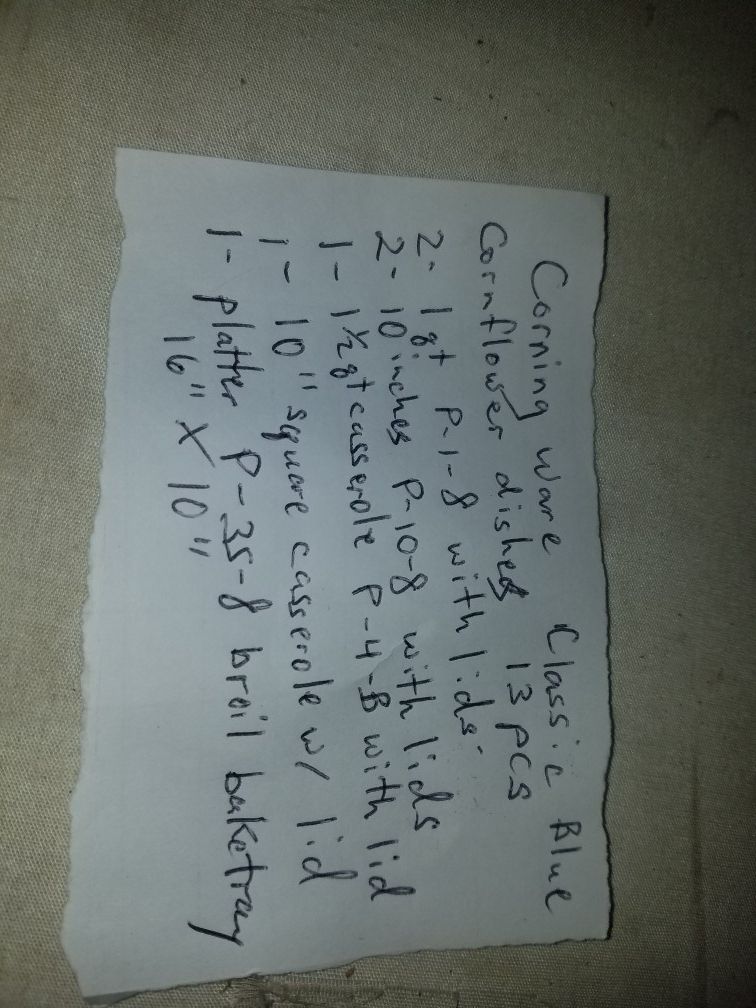 Corning ware Classic Blue
Cornflower dishes 13 pcs
2- 1 qt P-1-8 with lids
2- 10 inches P-10-8 with lids
1- 1½ qt casserole P-4-B with lid
1- 10" square casserole w/ lid
1- platter P-35-8 broil baketray
16" X 10"